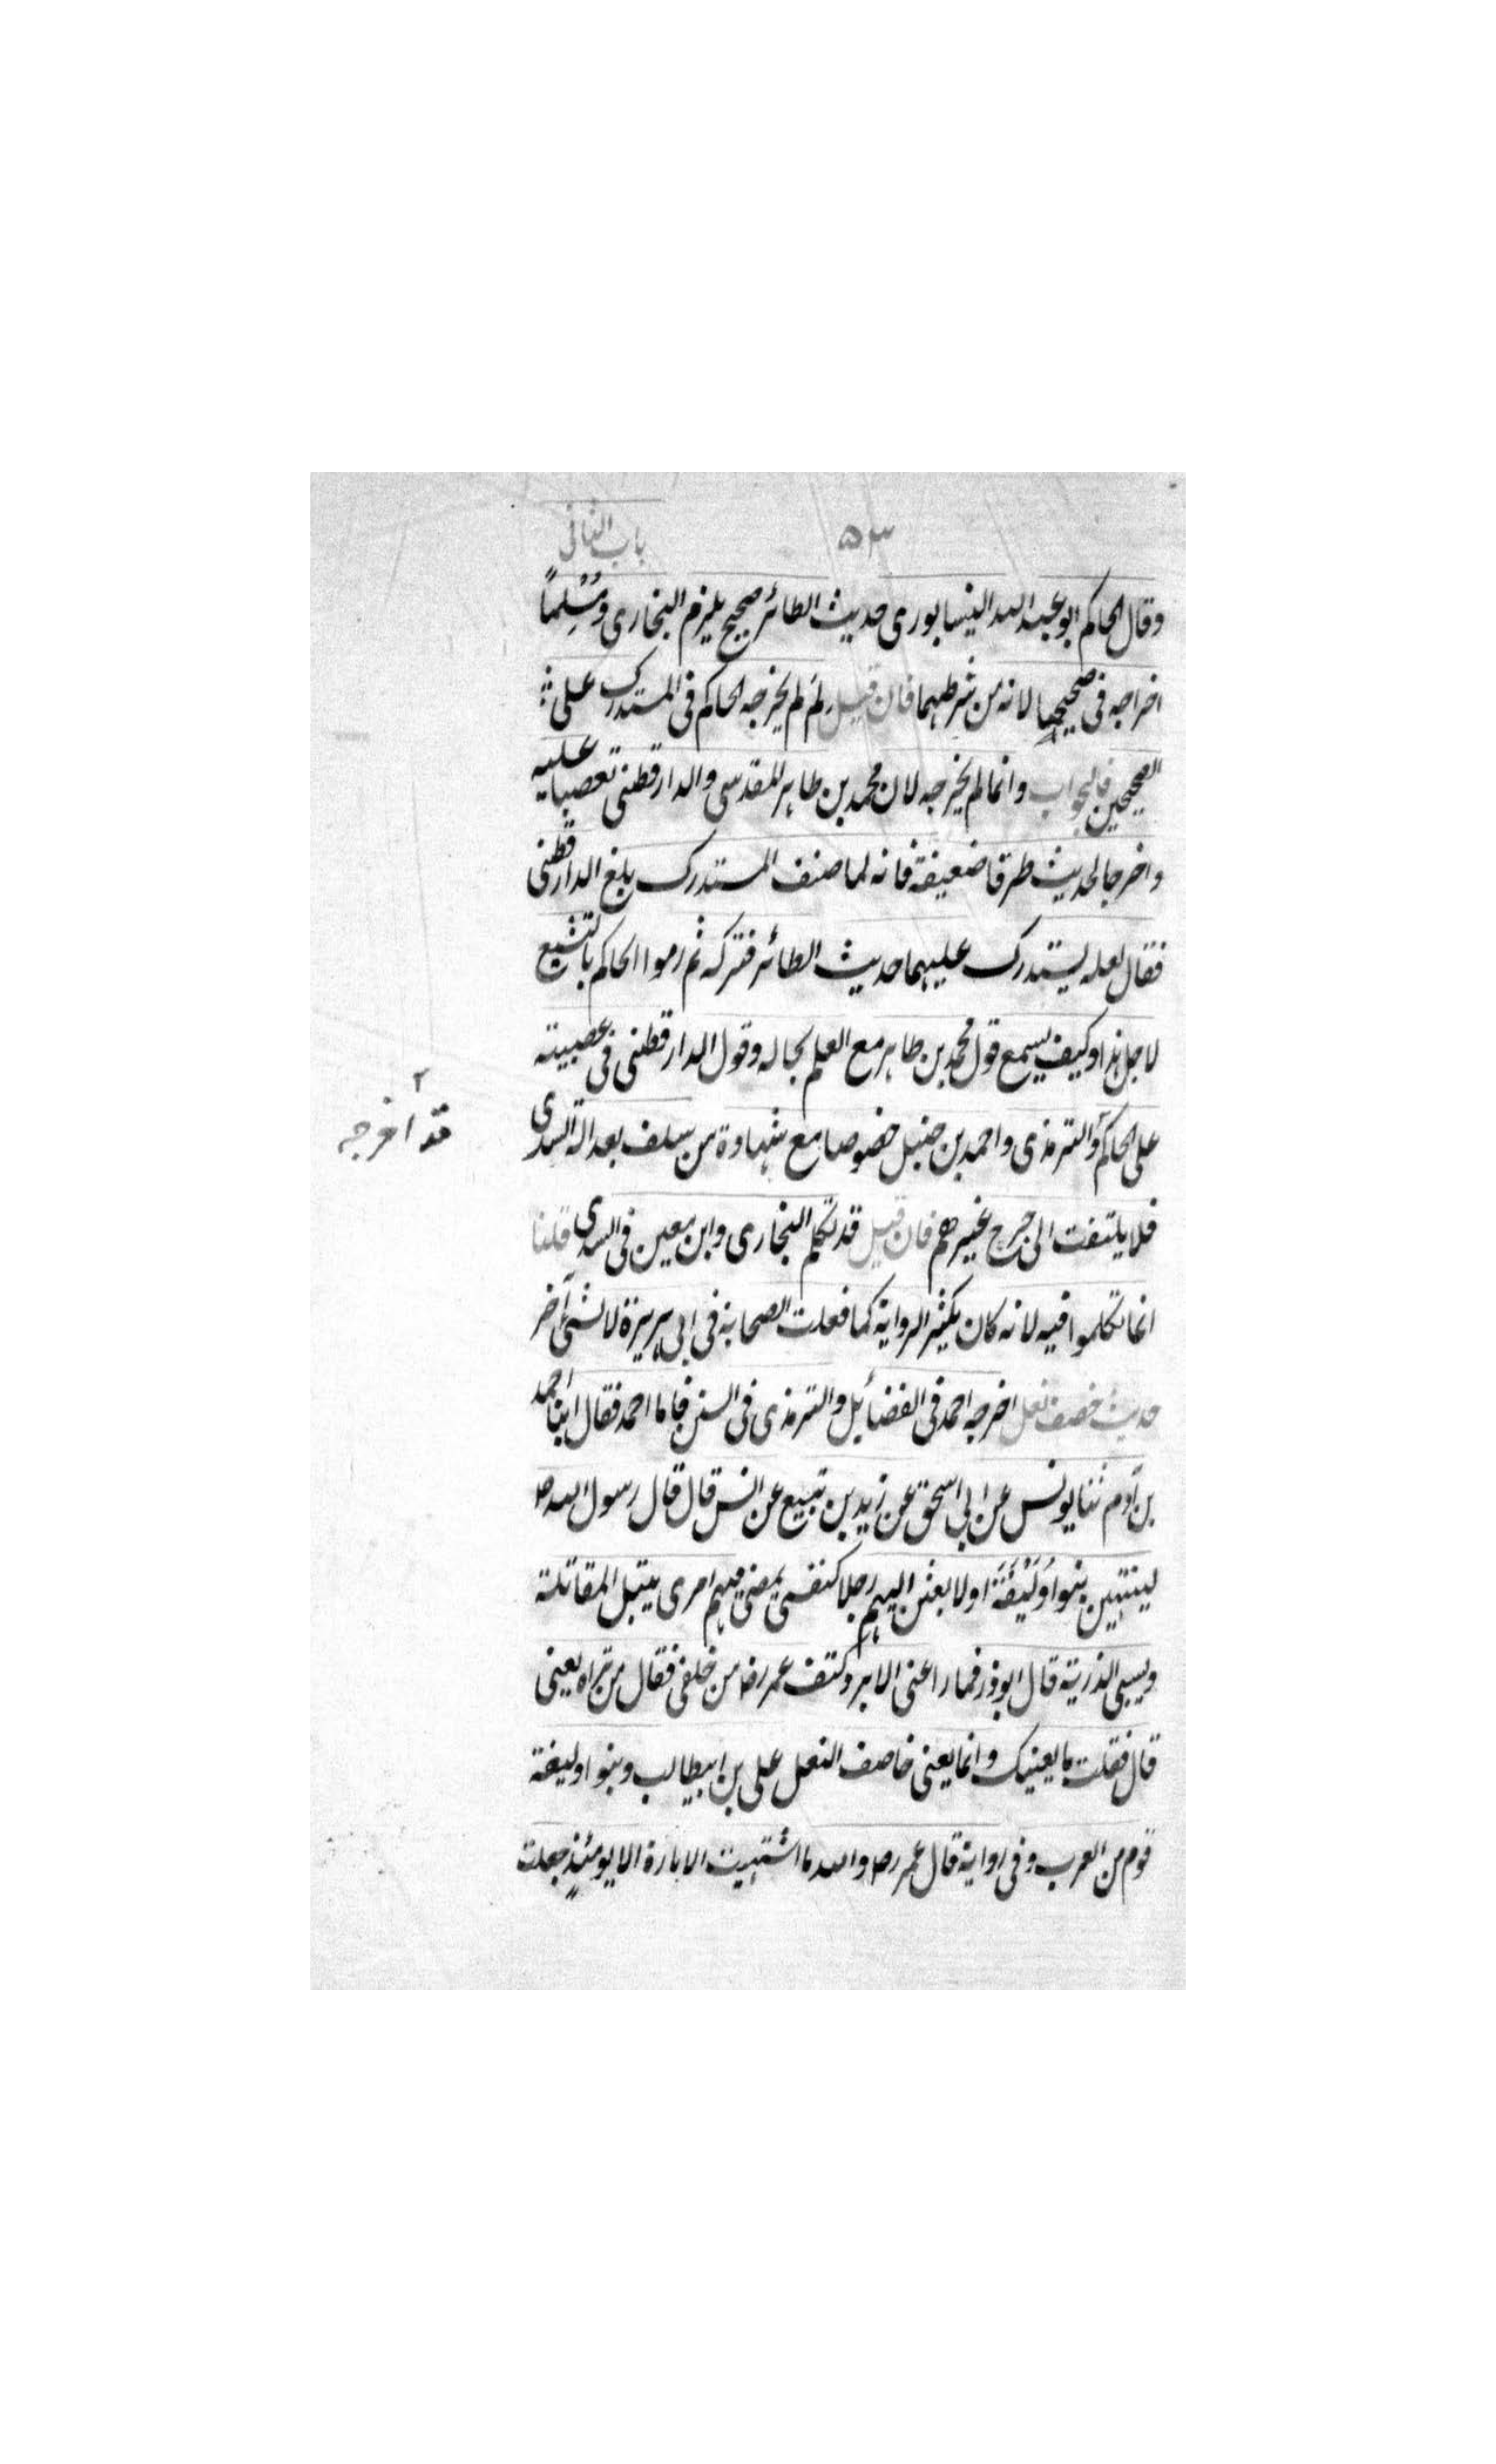 باب الثانی
۵۳
وقال الحاكم ابو عبد الله النيسابوری حديث الطائر صحيح يلزم البخاری ومُسْلِماً
اخراجه فی صحيحيهما لانه من شرطهما فان قيل لِمَ لم يخرجه الحاكم فی المستدرک علی
الصحيحين فالجواب وانما لم يخرجه لان محمد بن طاهر المقدسی والدارقطنی تعصبا عليه
واخرجا لحديث طرقا ضعيفة فانه لما صنف المستدرک بلغ الدارقطنی
فقال لعله يستدرک عليهما حديث الطائر فتركه ثم رموا الحاكم بالتشيع
لاجل هذا وكيف يسمع قول محمد بن طاهر مع العلم بحاله وقول الدارقطنی فی عصبيته
علی الحاكم والترمذی واحمد بن حنبل خصوصا مع شهادة من سلف بعدالة السدی
۲
قد اخرجه
فلا يلتفت الی جرح غيرهم فان قيل قد تكلم البخاری وابن معين فی السدی قلنا
انما تكلموا فيه لانه كان يكثر الرواية كما فعلت الصحابة فی ابی هريرة لا لشئ آخر
حديث خصف نعل اخرجه احمد فی الفضائل والترمذی فی السنن فاما احمد فقال انبا احمد
بن آدم ثنا يونس عن ابی اسحق عن زيد بن تبيع عن انس قال قال رسول الله ص
لينتهين بنو اوَلَيْفَةَ او لابعثن اليهم رجلا كنفسی يمضی فيهم امری يقبل المقاتلة
ويسبی الذرية قال ابو ذر فما راعنی الا برد كتف عمر رض من خلفی فقال من تراه يعنی
قال فقلت ما يعنيک وانما يعنی خاصف النعل علی بن ابيطالب وبنو اوليفة
قوم من العرب وفی رواية قال عمر رض والله ما اشتهيت الامارة الا يومئذٍ جعلت